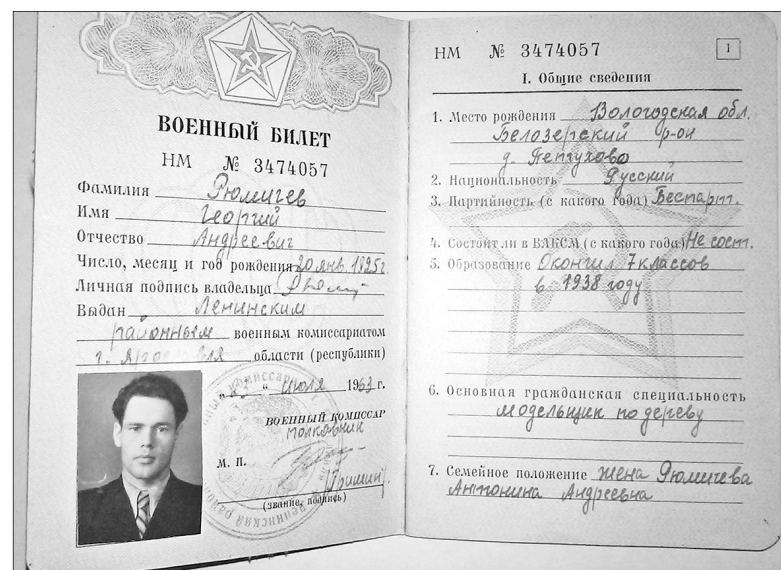 ВОЕННЫЙ БИЛЕТ
НМ № 3474057
Фамилия Рюмичев
Имя Георгий
Отчество Андреевич
Число, месяц и год рождения 20 янв. 1925г
Личная подпись владельца
Выдан Ленинским
районным военным комиссариатом
г. Ярославля области (республики)
" " июля 1963 г.
ВОЕННЫЙ КОМИССАР
полковник
М. П.
(звание, подпись)
НМ № 3474057
1
I. Общие сведения
1. Место рождения Вологодская обл.
Белозерский р-он
д. Петухово
2. Национальность Русский
3. Партийность (с какого года) Беспарт.
4. Состоит ли в ВЛКСМ (с какого года) Не сост.
5. Образование Окончил 7 классов
в 1938 году
6. Основная гражданская специальность
модельщик по дереву
7. Семейное положение жена Рюмичева
Антонина Андреевна